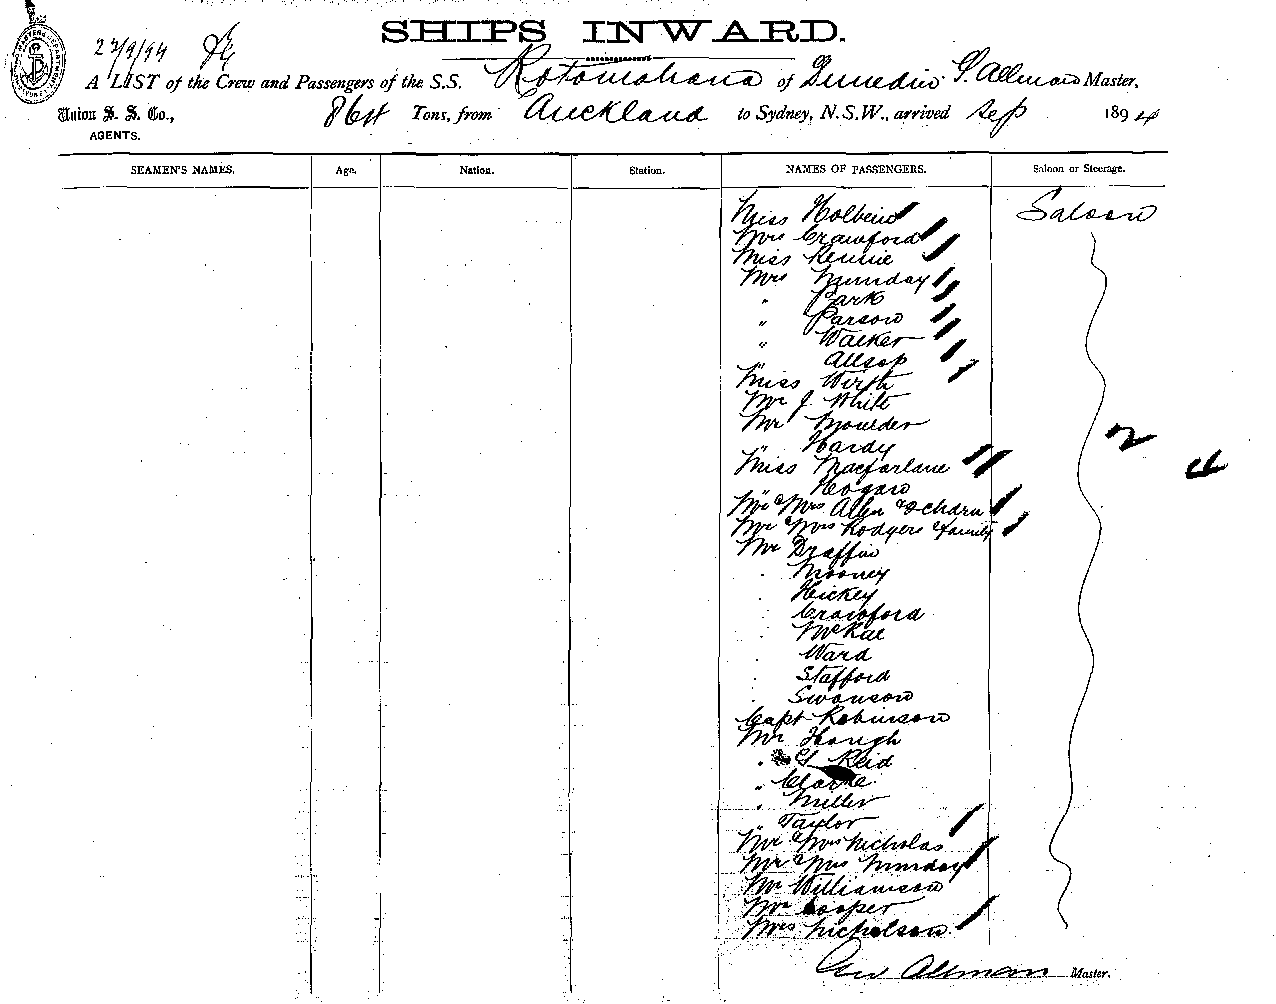 SHIPS INWARD.
27/9/94
A LIST of the Crew and Passengers of the S.S. Rotomahana of Dunedin G. Allman Master,
Union S. S. Co., 864 Tons, from Auckland to Sydney, N.S.W., arrived Sep 1894
AGENTS.
SEAMEN'S NAMES. Age. Nation. Station. NAMES OF PASSENGERS. Saloon or Steerage.
Miss Holbein Saloon
Mrs Crawford
Miss Rennie
Mrs Munday
" Park
" Parson
" Walker
" Allsop
Miss Wirth
Mr J. White
Mr Moulder
" Hardy
Miss Macfarlane
" Hogan
Mr & Mrs Allen & 2 Childrn
Mr & Mrs Rodgers & Family
Mr Draffin
. Mooney
. Hickey
. Crawford
. McRae
. Ward
. Stafford
. Swanson
Capt Robinson
Mr Hough
" G Reid
" Clarke
" Miller
" Taylor
Mr & Mrs Nicholas
Mr & Mrs Munday
Mr Williamson
Mr Cooper
Mrs Nicholson
Geo Allman Master.